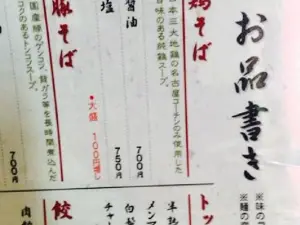 お品書き
※味の
※麺の
鶏そば
日本三大地鶏の名古屋コーチンのみ使用した
旨味のある純鶏スープ。
醤油 700円
塩 750円
●大盛 100円増し
豚そば
国産豚のゲンコツ、背ガラ等を長時間煮込んだ
コクのあるトンコツスープ。
700円
トッ
半熟
メンマ
白髪
チャー
餃
肉